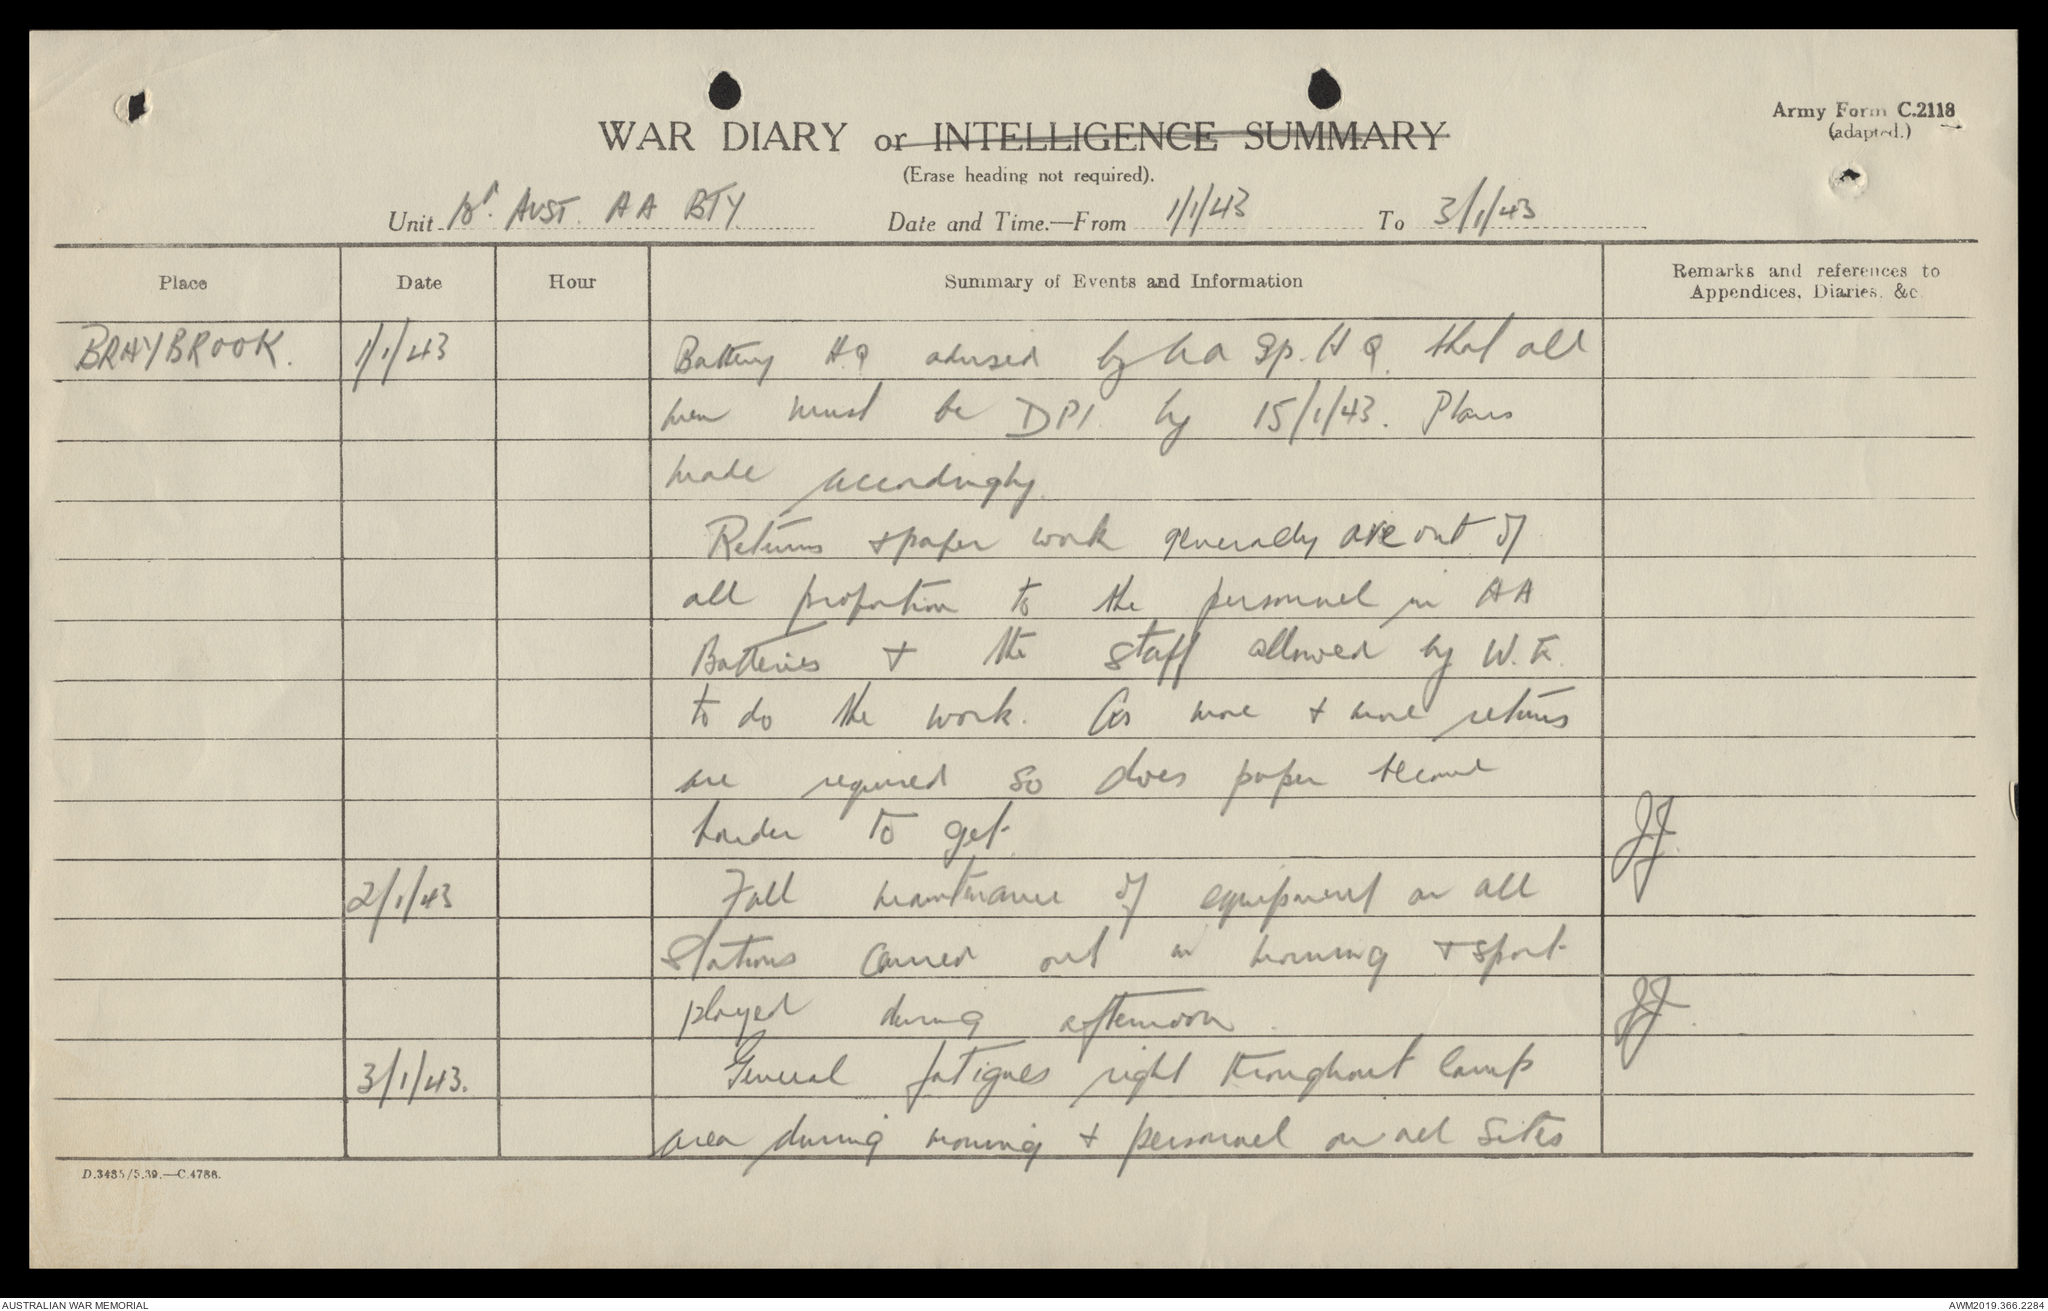 Army Form C.2118
(adapted.)
WAR DIARY or INTELLIGENCE SUMMARY
(Erase heading not required).
Unit AUST. AA BTY Date and Time.—From 1/1/43 To 3/1/43
Place Date Hour Summary of Events and Information Remarks and references to Appendices, Diaries, &c.
BRAYBROOK. 1/1/43 Battery H.Q advised by AA Gp. HQ. that all
men must be DP1 by 15/1/43. Plans
made accordingly.
Returns + paper work generally are out of
all proportion to the personnel in AA
Batteries + the staff allowed by W.E.
to do the work. As more + more returns
are required so does paper become
harder to get. JJ.
2/1/43 Full maintenance of equipment on all
Stations carried out in morning + sport
played during afternoon. JJ.
3/1/43. General fatigues right throughout camp
area during morning + personnel on all sites
D.3435/5.39.—C.4788.
AUSTRALIAN WAR MEMORIAL AWM2019.366.2284